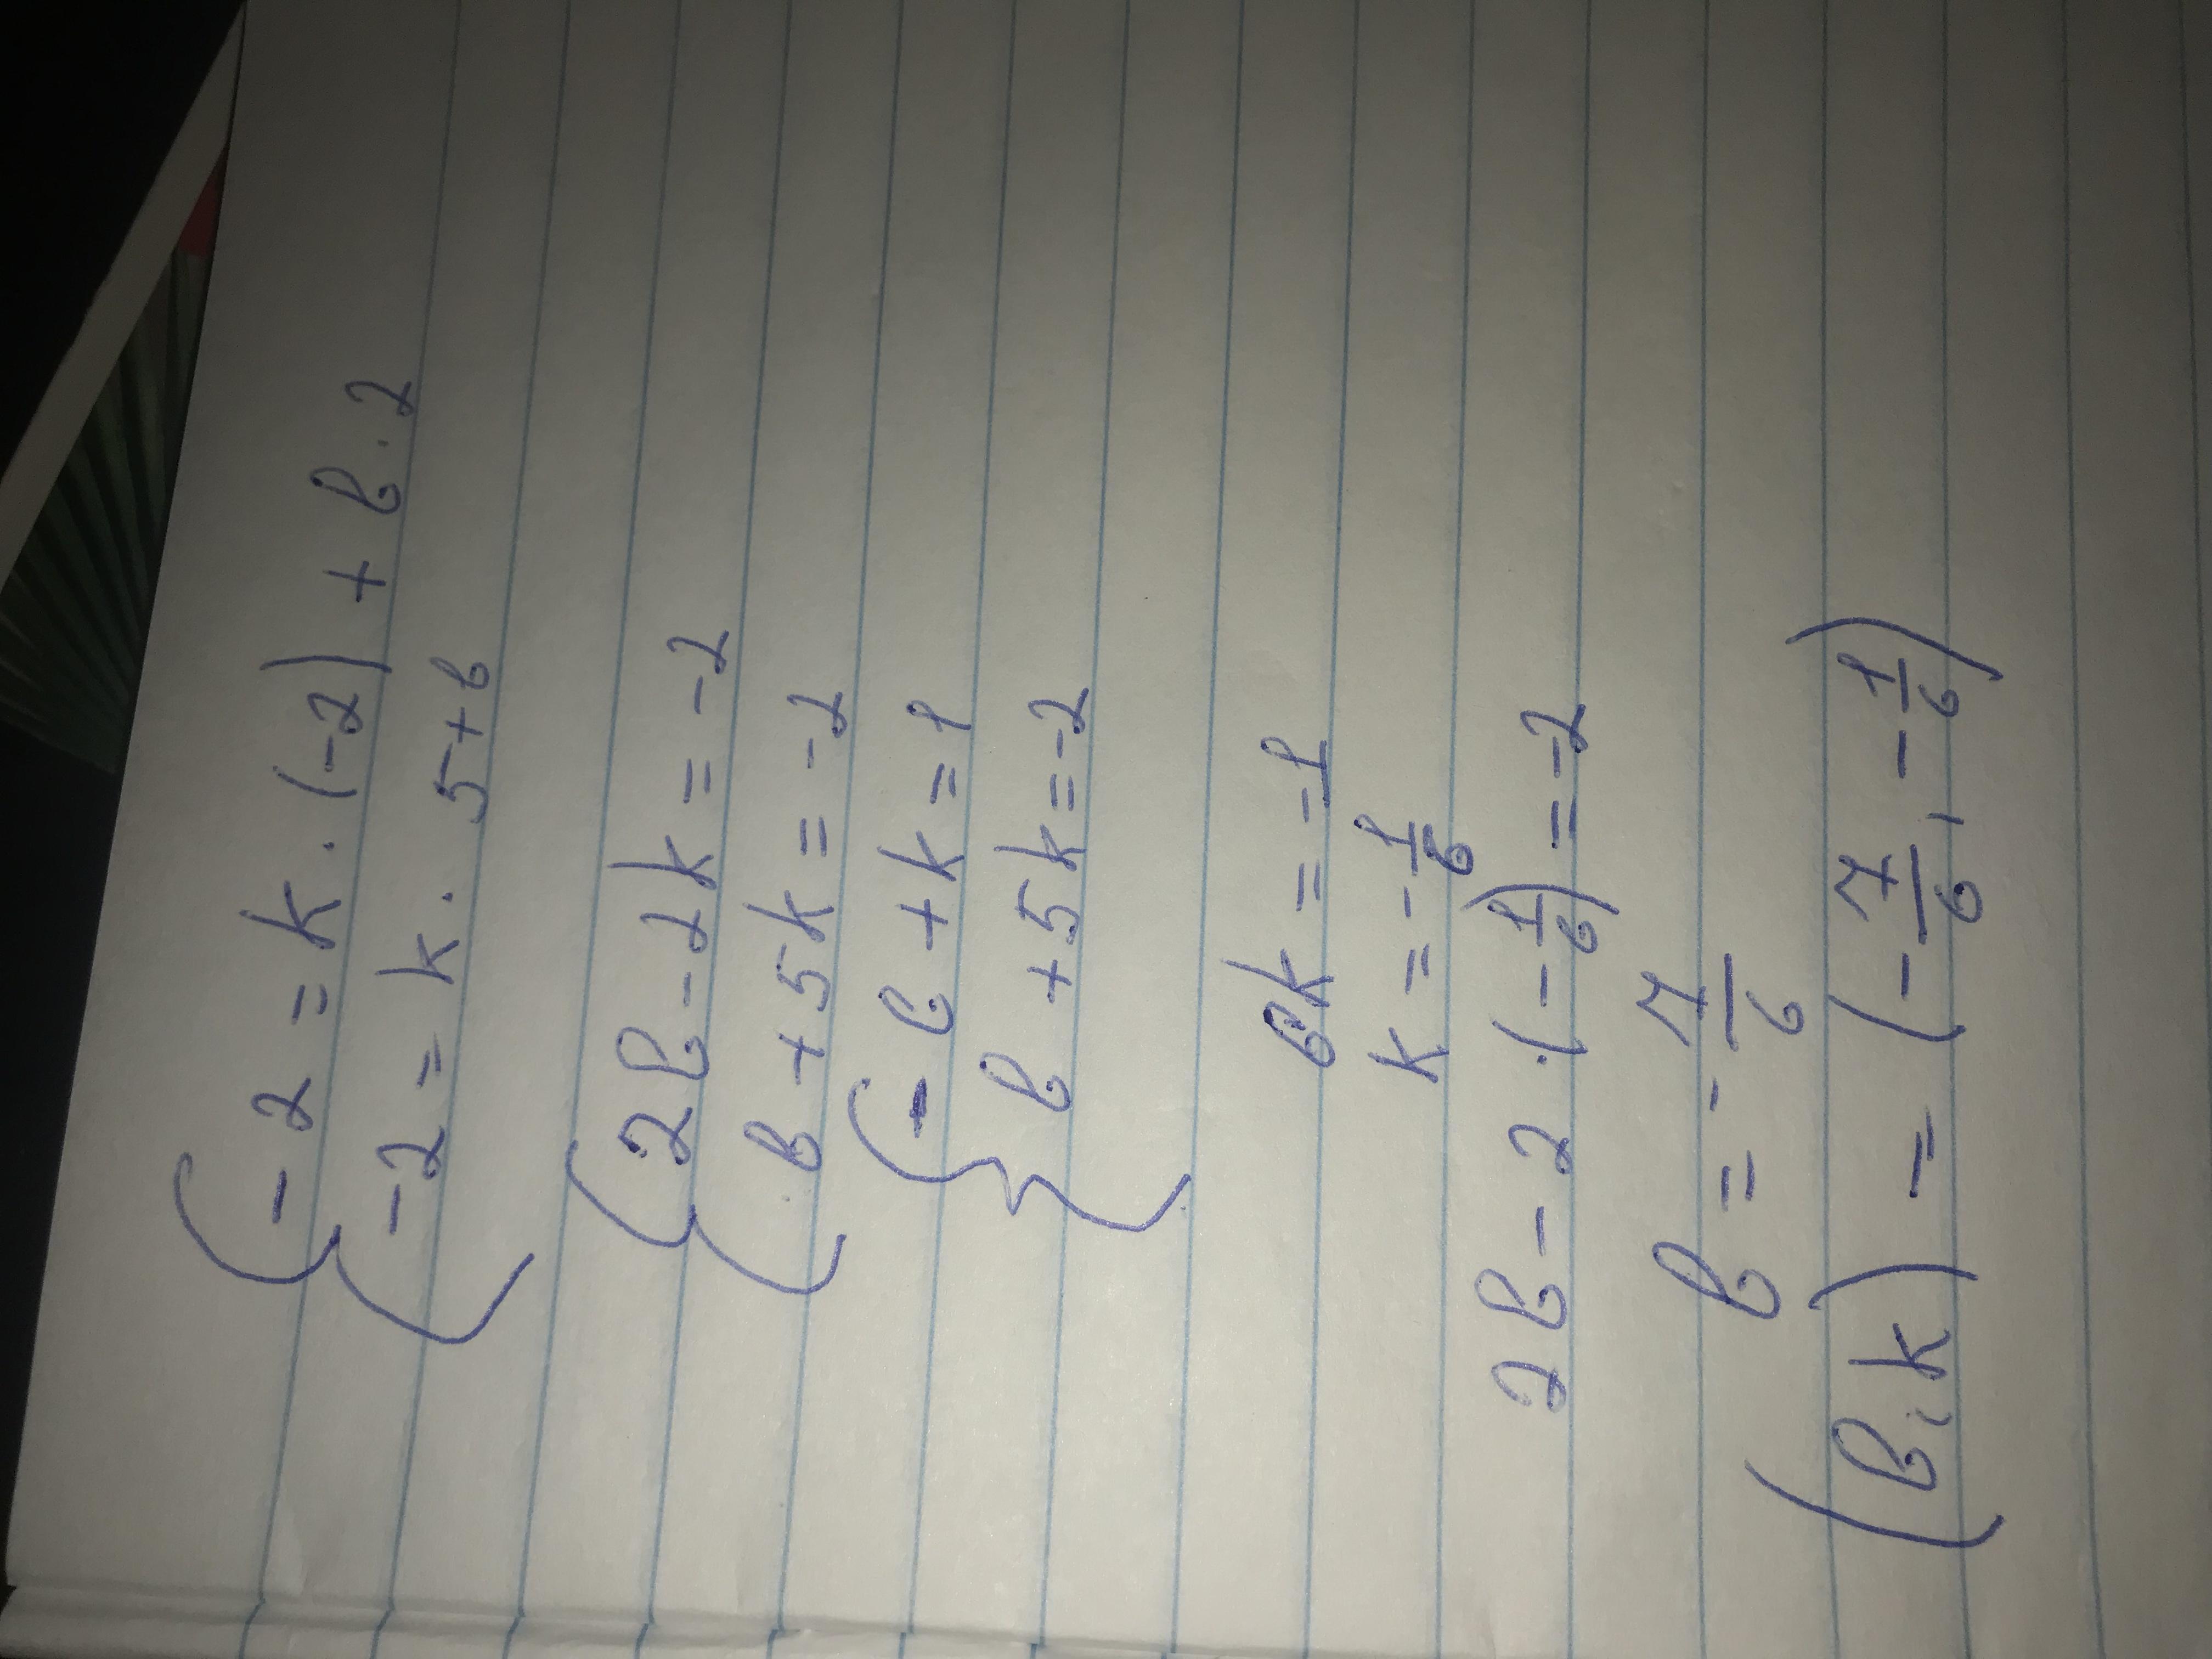 -2 = k · (-2) + b · 2
-2 = k · 5 + b
2b - 2k = -2
b + 5k = -2
-b + k = 1
b + 5k = -2
6k = -1
k = - 1/6
2b - 2 · (- 1/6) = -2
b = - 7/6
(b, k) = (- 7/6, - 1/6)